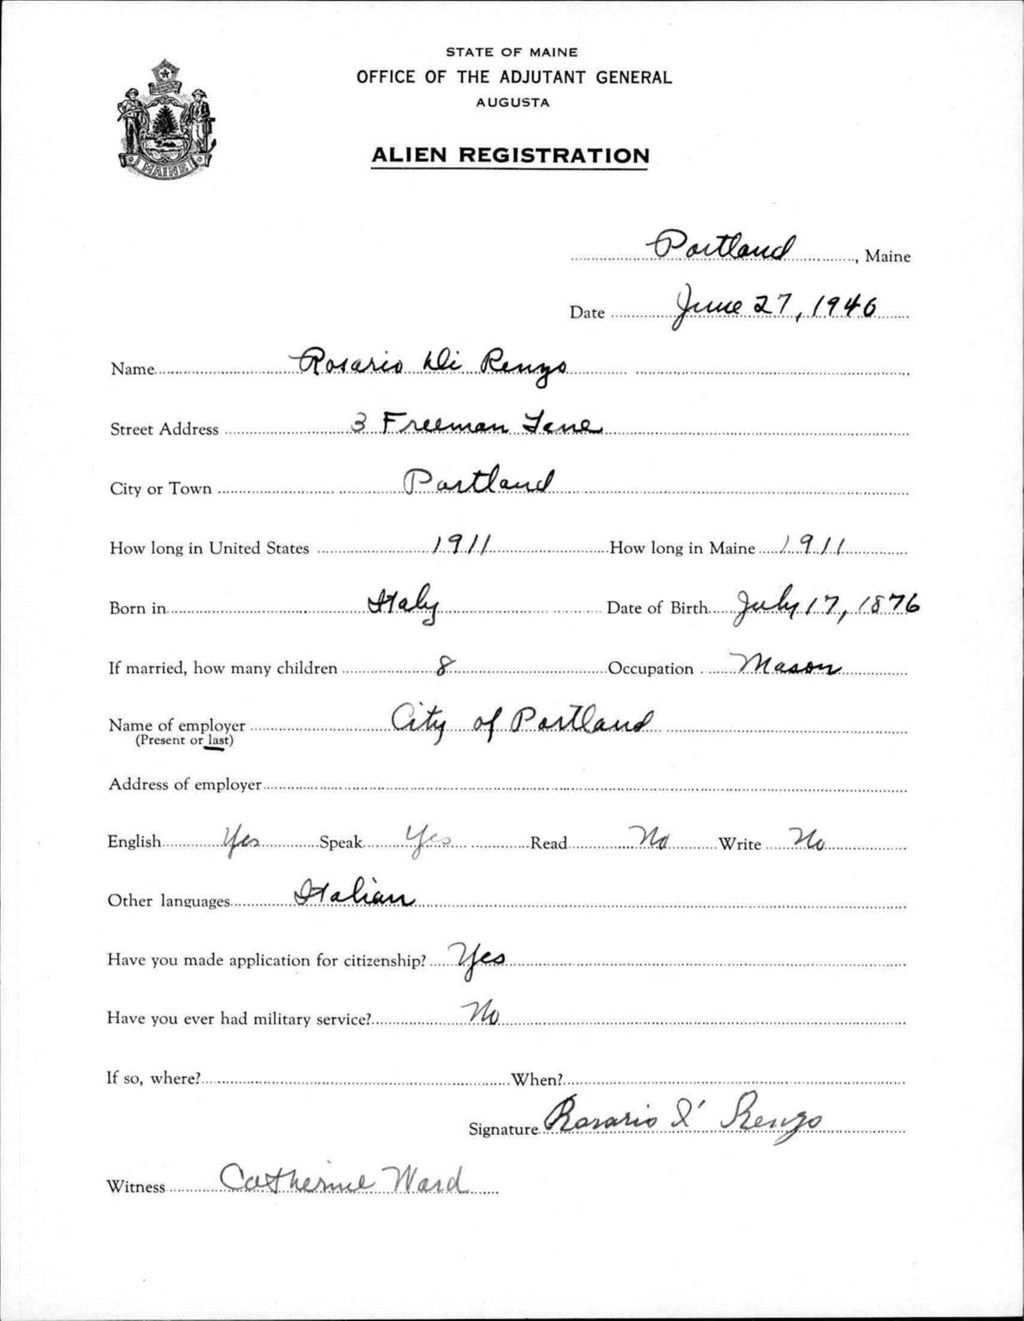 STATE OF MAINE
OFFICE OF THE ADJUTANT GENERAL
AUGUSTA
ALIEN REGISTRATION
MAINE
Portland, Maine
Date June 27, 1940
Name Rosario Di Renzo
Street Address 3 Freeman Lane
City or Town Portland
How long in United States 1911 How long in Maine 1911
Born in Italy Date of Birth July 17, 1876
If married, how many children 8 Occupation Mason
Name of employer City of Portland
(Present or last)
Address of employer
English Yes Speak Yes Read No Write No
Other languages Italian
Have you made application for citizenship? Yes
Have you ever had military service? No
If so, where? When?
Signature Rosario D' Renzo
Witness Catherine Ward